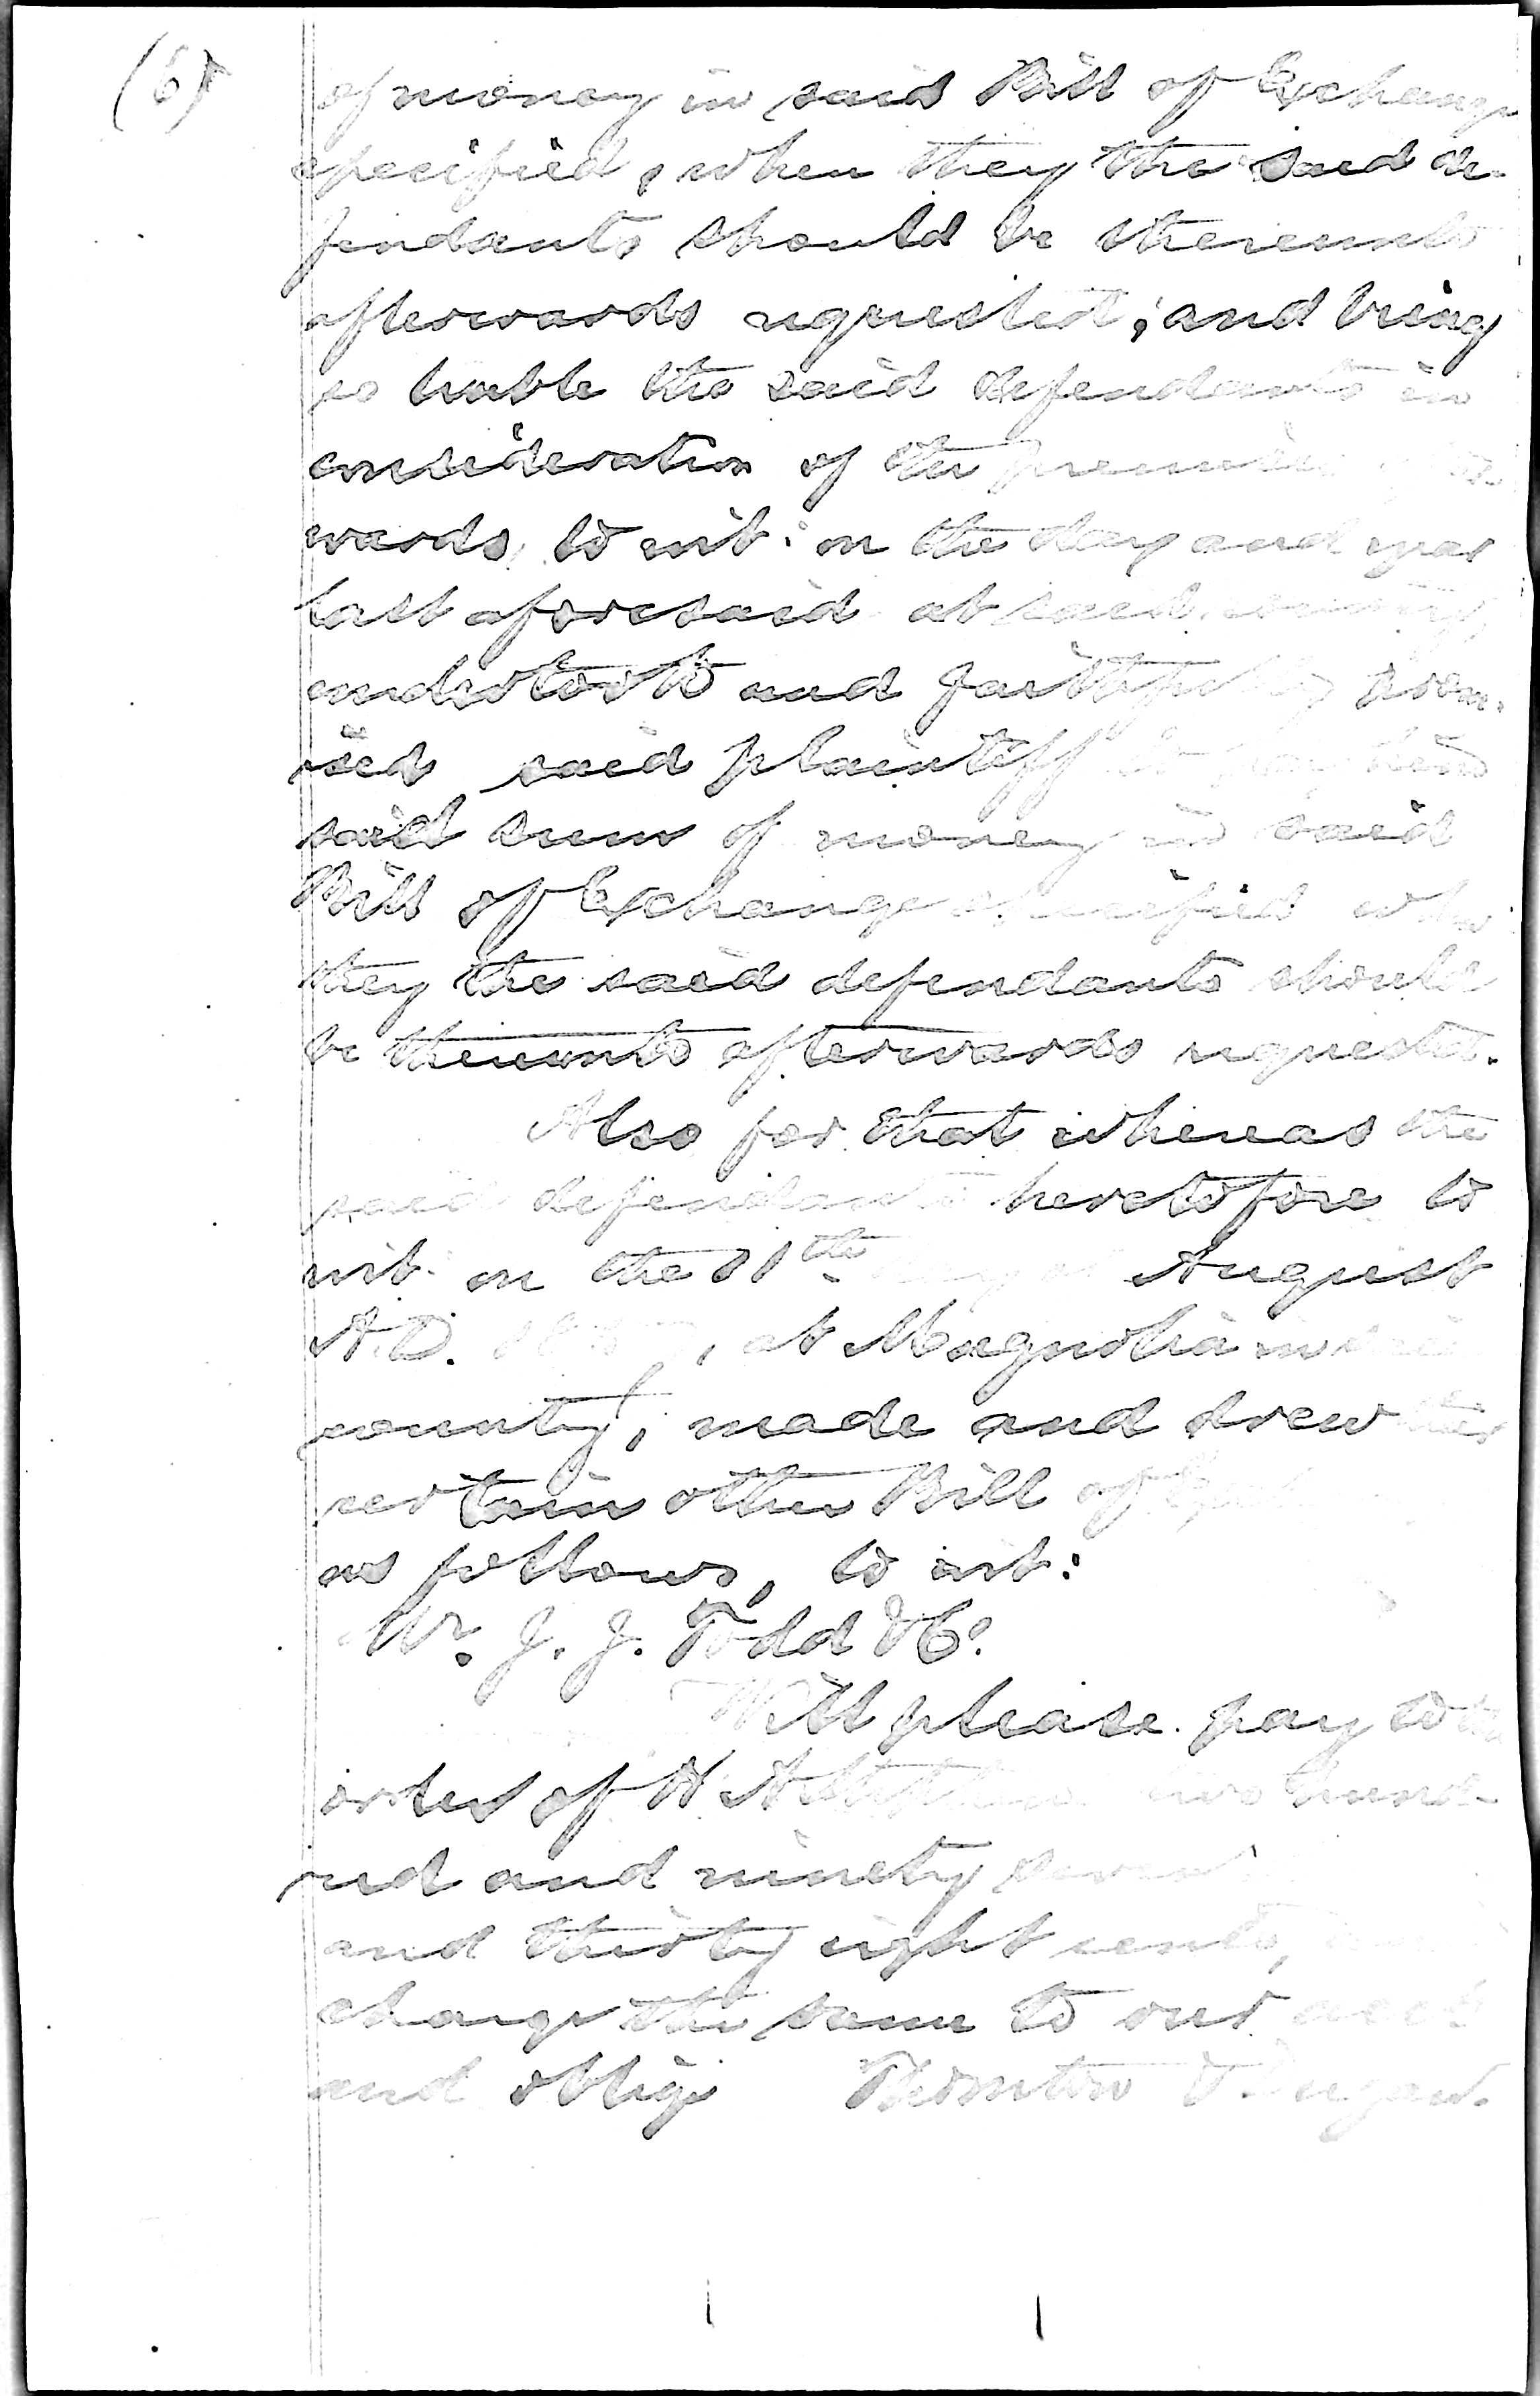 (6)
of money in said Bill of Exchange
specified, when they the said de-
fendants should be thereunto
afterwards requested; and being
so liable the said defendants in
consideration of the premises
wards, to wit: on the day and year
last aforesaid at said county
undertook and faithfully prom-
ised said plaintiff to pay him
said sum of money in said
Bill of Exchange specified when
they the said defendants should
be thereunto afterwards requested.
Also for that whereas the
said defendants heretofore to
wit: on the 11th day of August
A.D. , at Magnolia in said
county, made and drew their
certain other Bill of
as follows, to wit:
J. J. Todd & Co.
Will please pay to the
order of two hund-
red and ninety seven
and thirty eight cents,
charge the same to our acct
and oblige Thornton